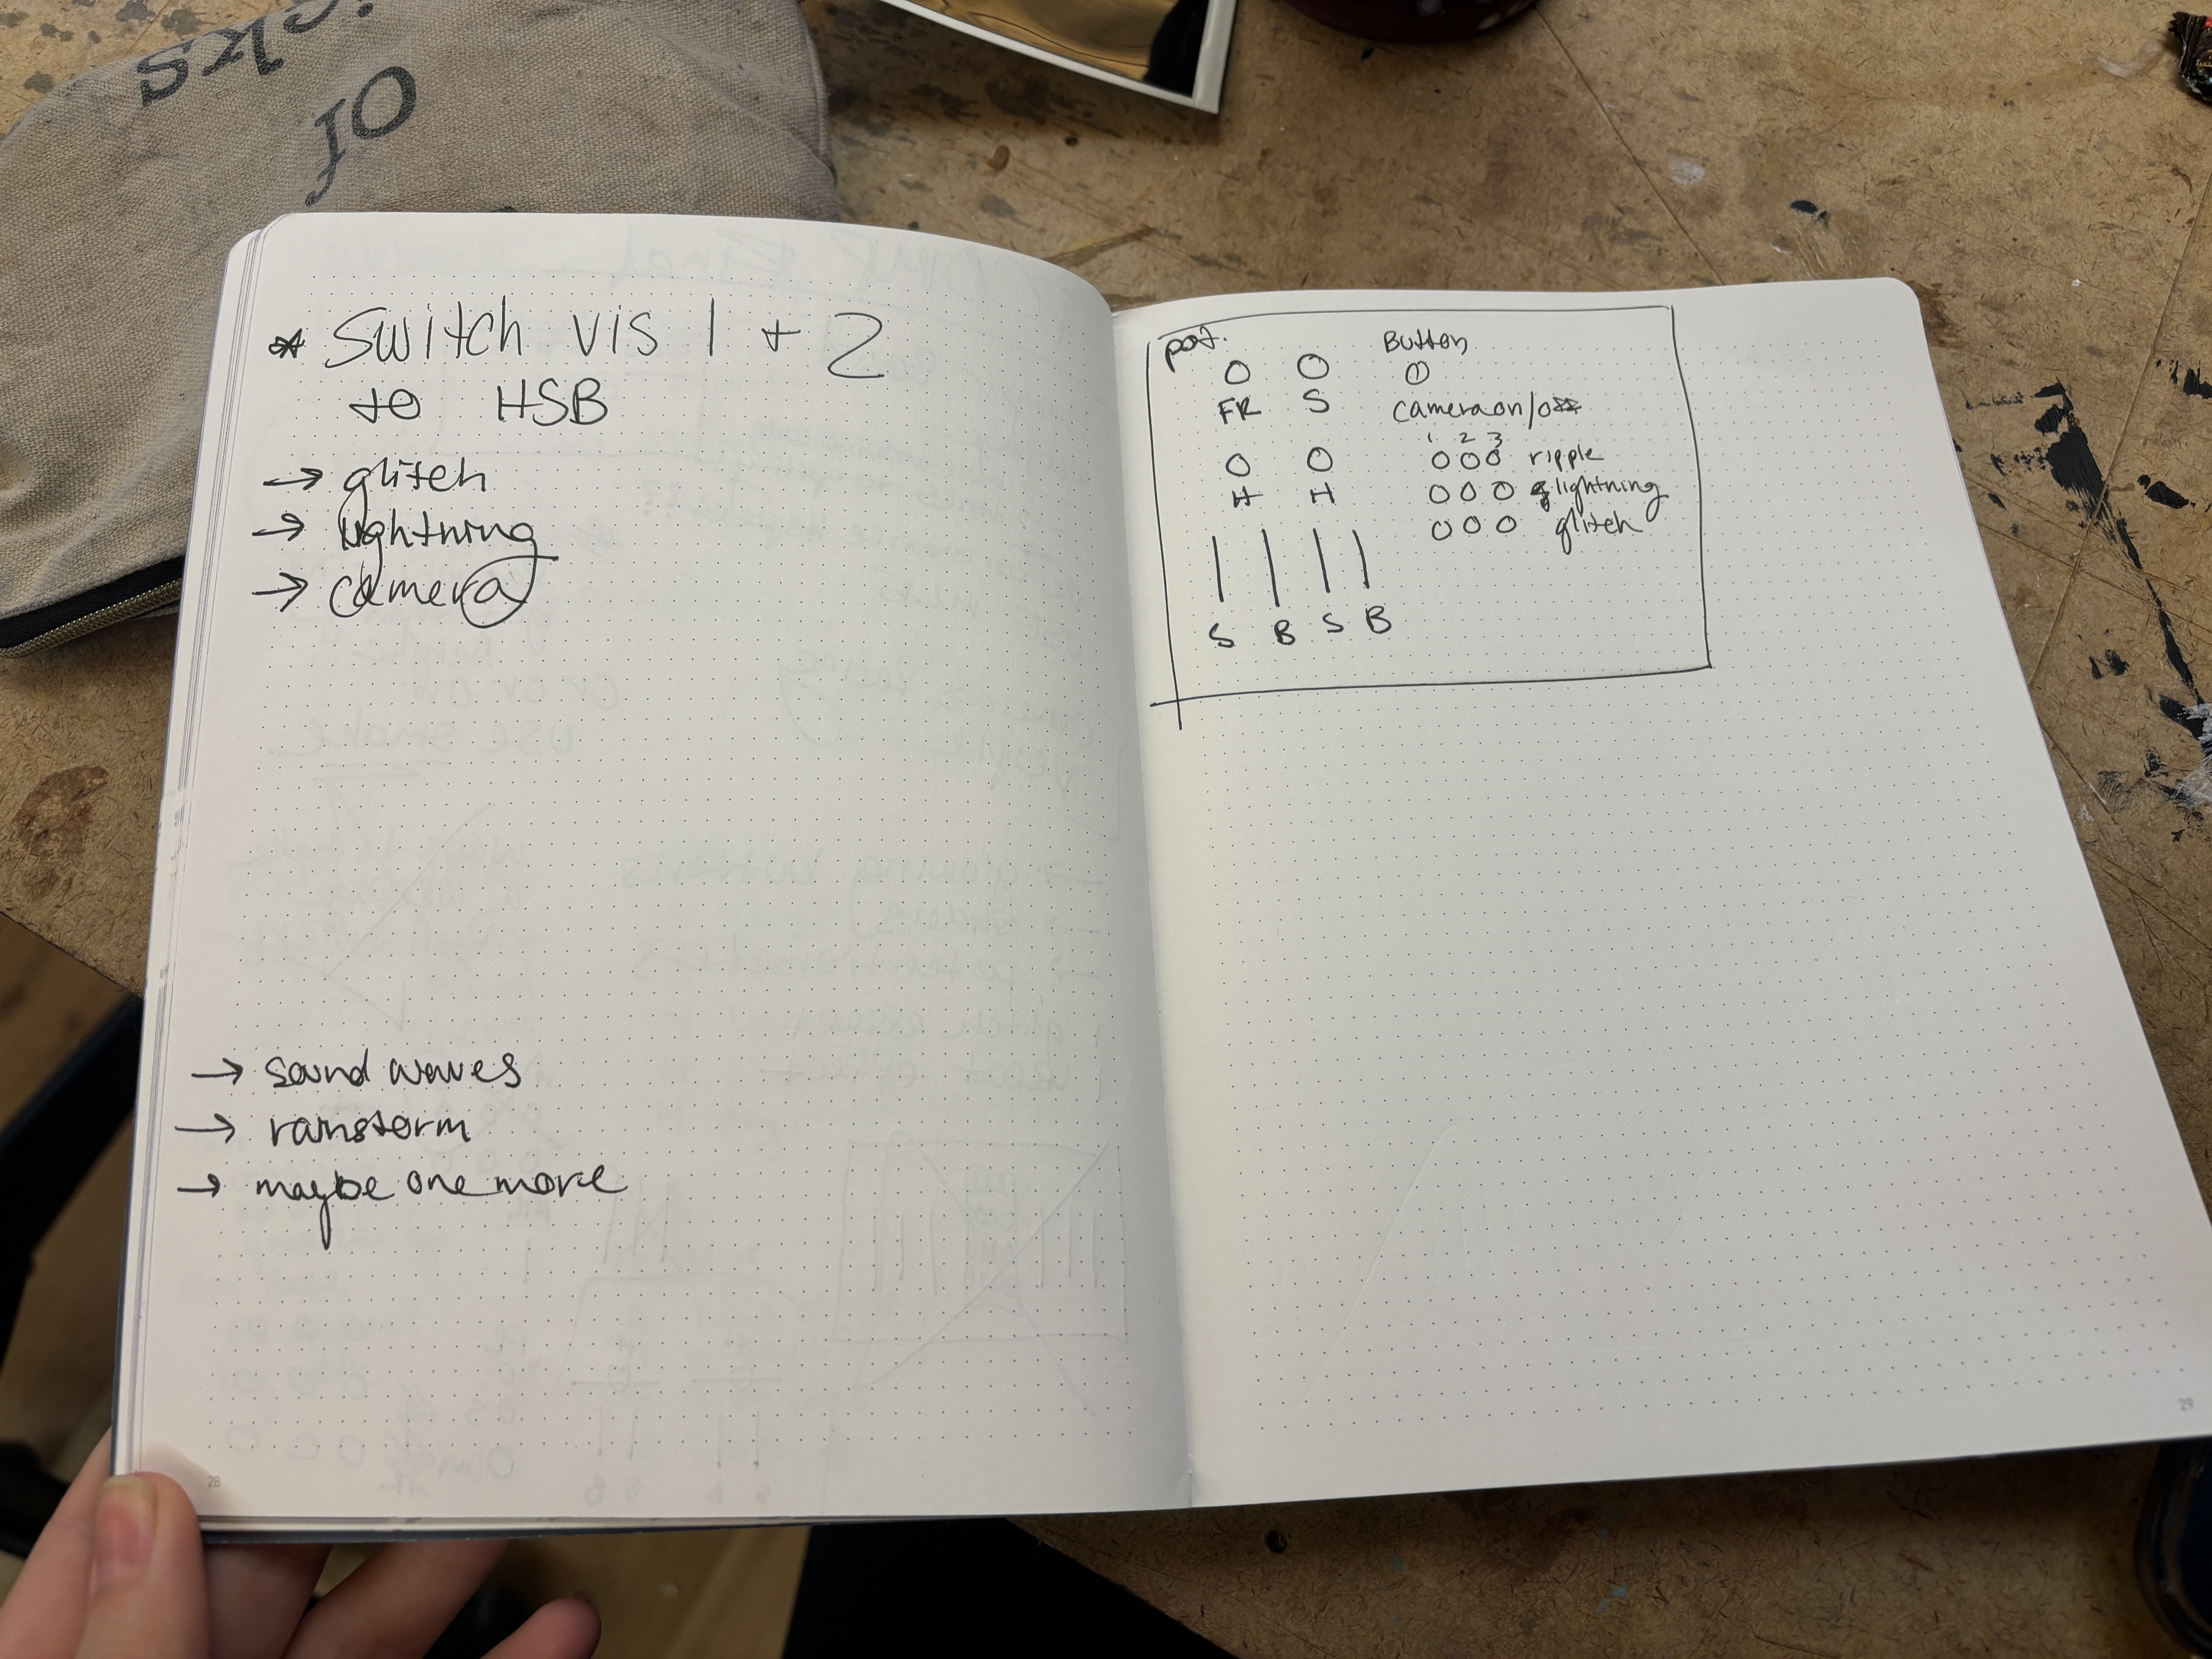 * Switch vis 1 + 2
to HSB
→ glitch
→ lightning
→ camera
→ sound waves
→ rainstorm
→ maybe one more
28
pot.
Button
FR S
camera on/off
1 2 3
ripple
H H
lightning
glitch
S B S B
29
OF